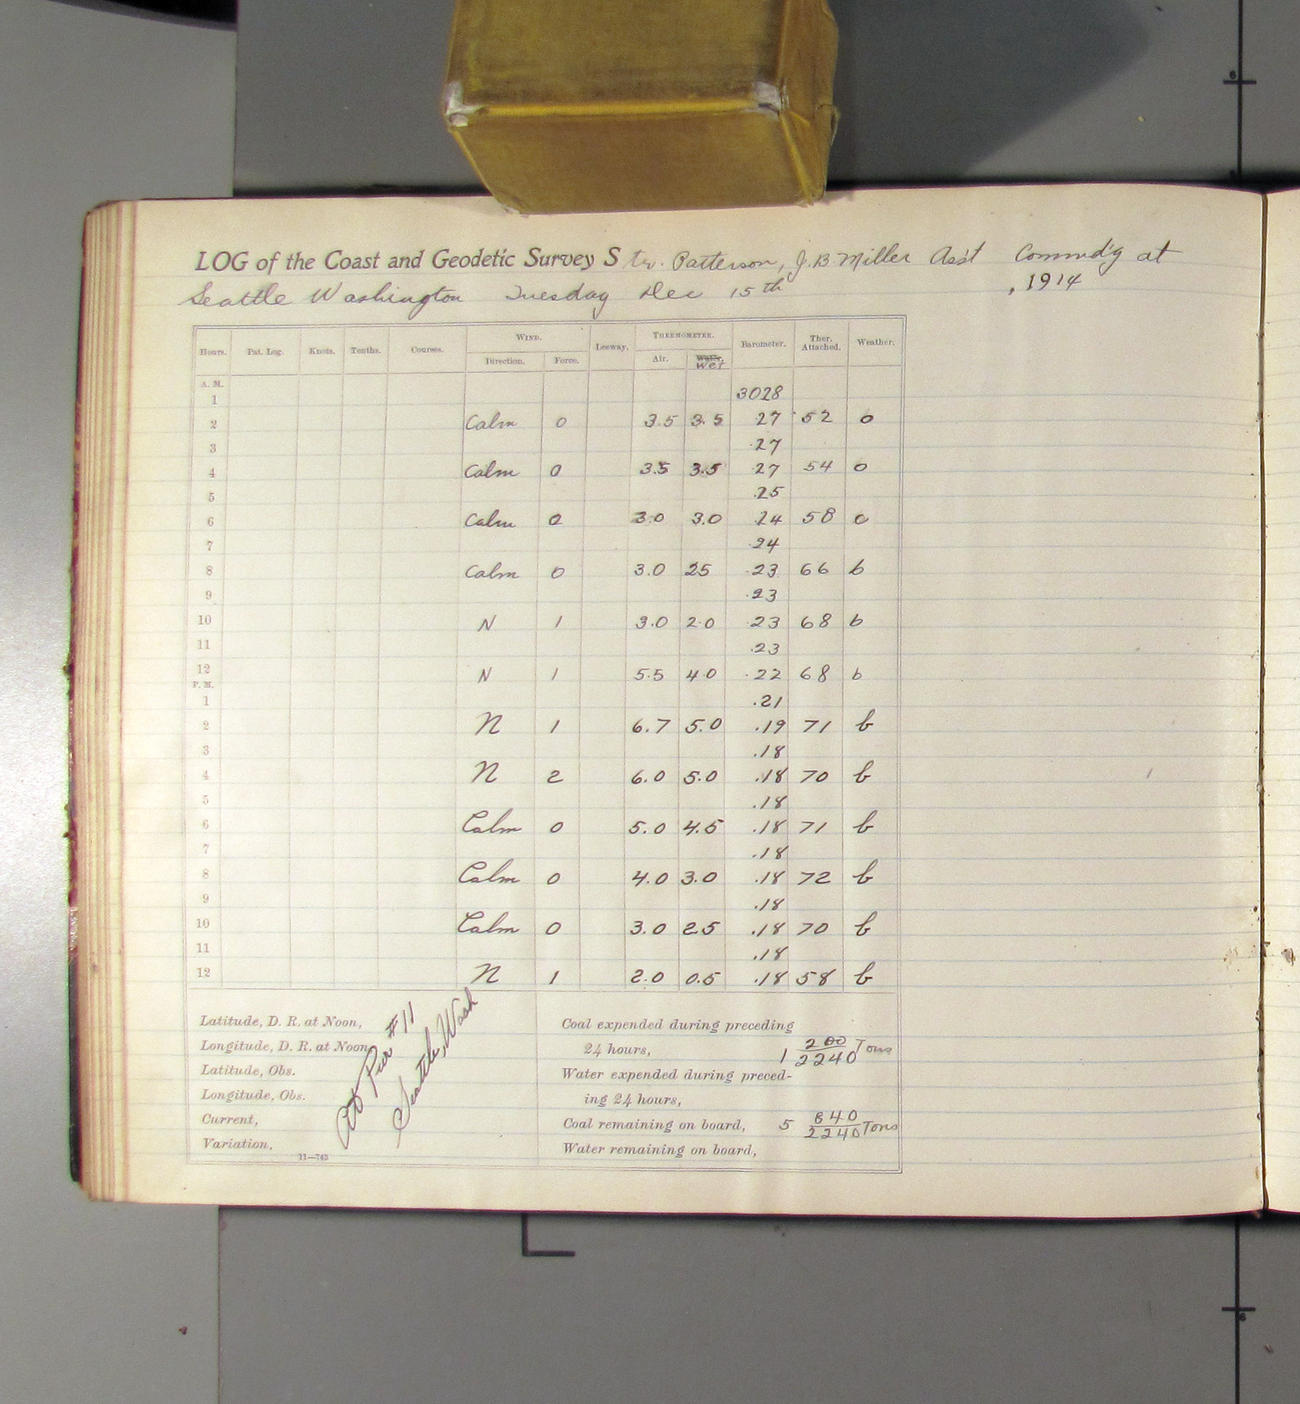 LOG of the Coast and Geodetic Survey Str. Patterson, J.B. Miller Ass't Commd'g at
Seattle Washington Tuesday Dec 15th , 1914
Hours. Pat. Log. Knots. Tenths. Courses. WIND. Leeway. THERMOMETER. Barometer. Ther. Attached. Weather.
Direction. Force. Air. Water. wet
A. M.
1 3028
2 Calm 0 3.5 3.5 27 52 o
3 .27
4 Calm 0 3.5 3.5 .27 54 o
5 .25
6 Calm 0 3.0 3.0 .24 58 o
7 .24
8 Calm 0 3.0 25 .23 66 b
9 .23
10 N 1 3.0 2.0 .23 68 b
11 .23
12 N 1 5.5 4.0 .22 68 b
P. M.
1 .21
2 N 1 6.7 5.0 .19 71 b
3 .18
4 N 2 6.0 5.0 .18 70 b
5 .18
6 Calm 0 5.0 4.5 .18 71 b
7 .18
8 Calm 0 4.0 3.0 .18 72 b
9 .18
10 Calm 0 3.0 2.5 .18 70 b
11 .18
12 N 1 2.0 0.5 .18 58 b
Latitude, D. R. at Noon,
Longitude, D. R. at Noon,
Latitude, Obs.
Longitude, Obs.
Current,
Variation,
At Pier #11
Seattle, Wash
11—763
Coal expended during preceding
24 hours, 1 200/2240 Tons
Water expended during preced-
ing 24 hours,
Coal remaining on board, 5 840/2240 Tons
Water remaining on board,
6
6